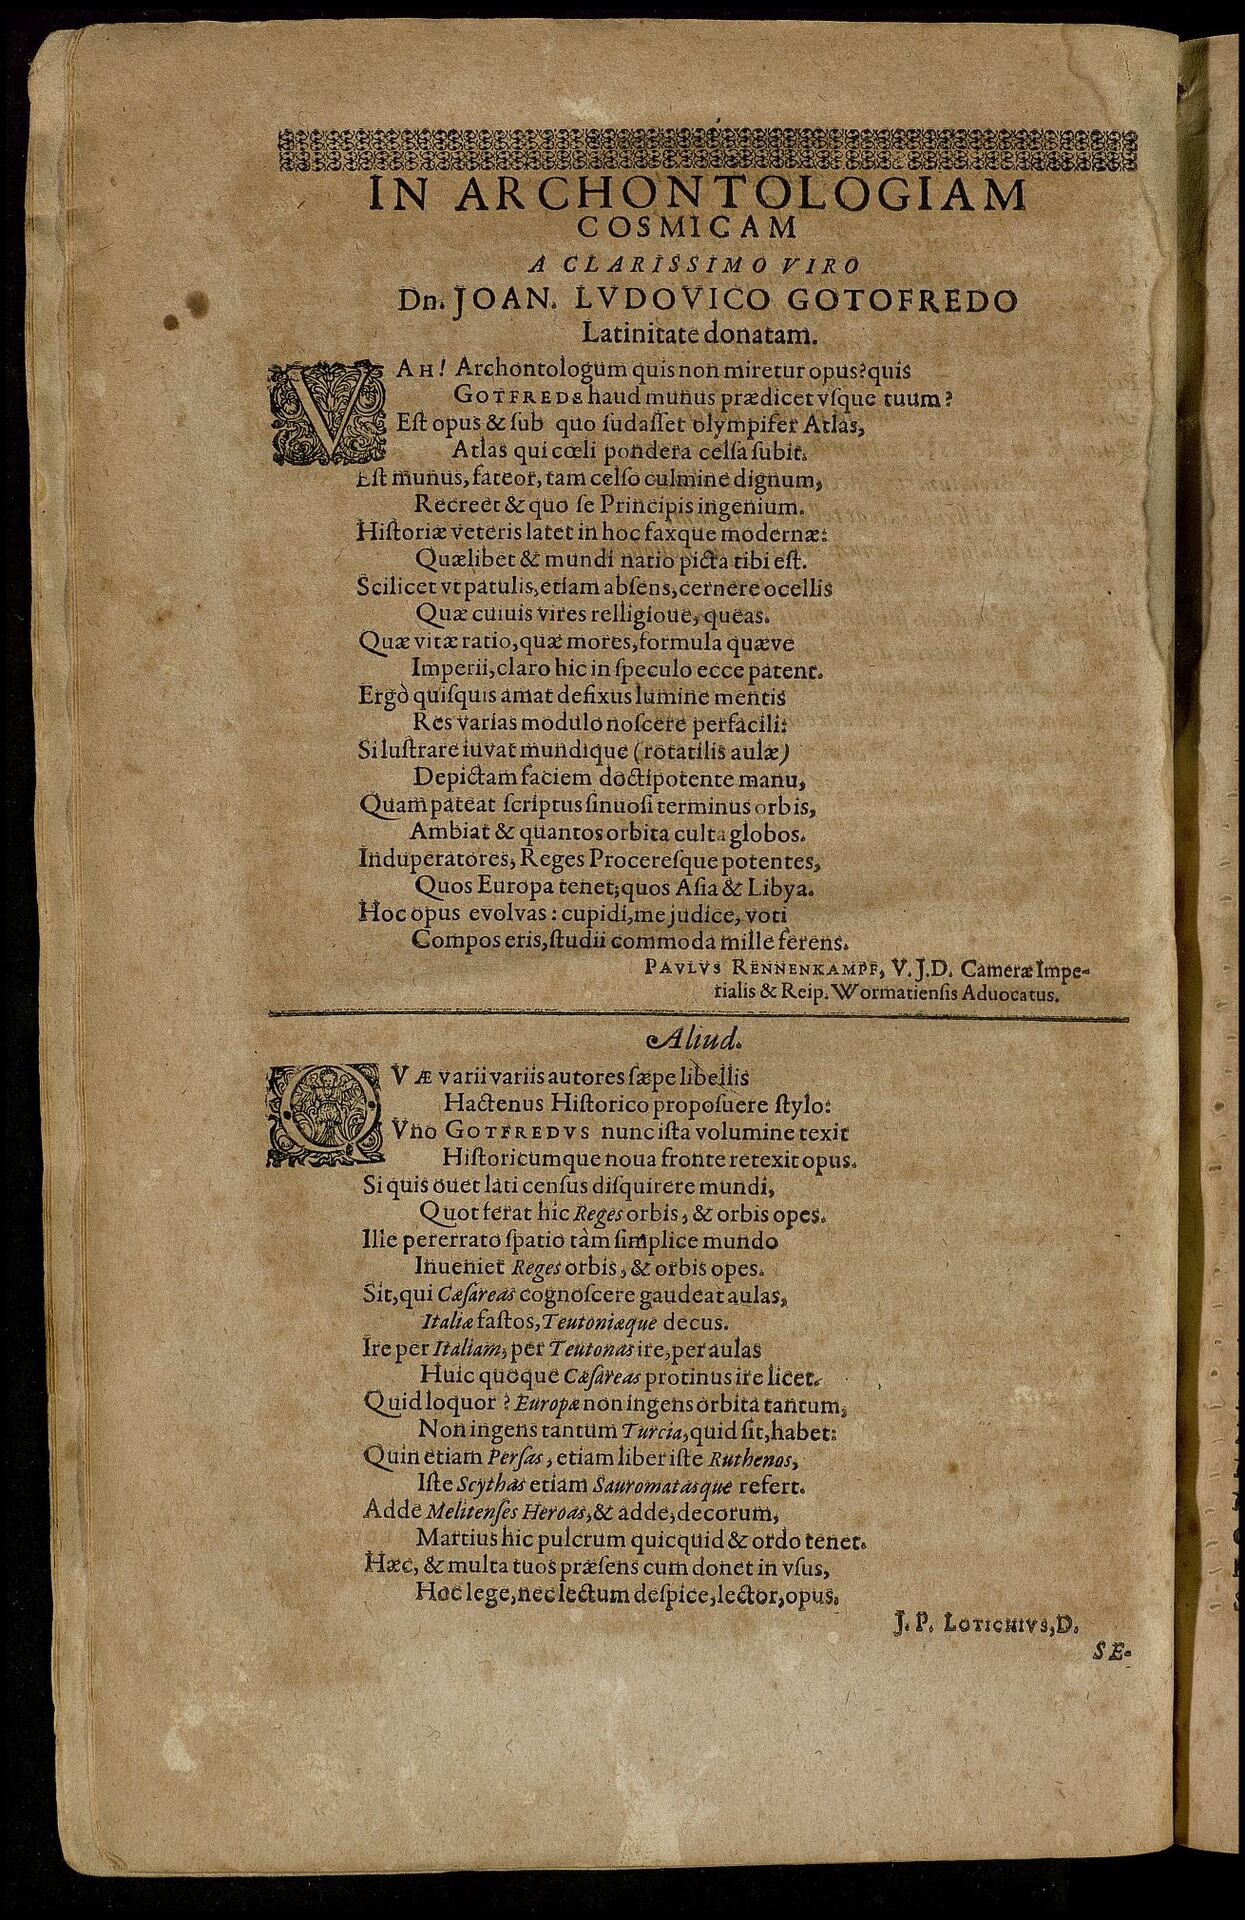 IN ARCHONTOLOGIAM
COSMICAM
A CLARISSIMO VIRO
Dn. JOAN. LVDOVICO GOTOFREDO
Latinitate donatam.
VAH! Archontologum quis non miretur opus? quis
GOTFREDE haud munus prædicet vſque tuum?
Eſt opus & ſub quo ſudaſſet olympifer Atlas,
Atlas qui cœli pondera celſa ſubit.
Eſt munus, fateor, tam celſo culmine dignum,
Recreet & quo ſe Principis ingenium.
Hiſtoriæ veteris latet in hoc faxque modernæ:
Quælibet & mundi natio picta tibi eſt.
Scilicet vt patulis, etiam abſens, cernere ocellis
Quæ cuiuis vires relligioue, queas.
Quæ vitæ ratio, quæ mores, formula quæve
Imperii, claro hic in ſpeculo ecce patent.
Ergò quiſquis amat defixus lumine mentis
Res varias modulo noſcere perfacili:
Si luſtrare iuvat mundique (rotatilis aulæ)
Depictam faciem doctipotente manu,
Quam pateat ſcriptus ſinuoſi terminus orbis,
Ambiat & quantos orbita culta globos.
Induperatores, Reges Procereſque potentes,
Quos Europa tenet; quos Aſia & Libya.
Hoc opus evolvas: cupidi, me judice, voti
Compos eris, ſtudii commoda mille ferens.
PAVLVS RENNENKAMPF, V. J. D. Cameræ Impe-
rialis & Reip. Wormatienſis Aduocatus.
Aliud.
QVÆ varii variis autores ſæpe libellis
Hactenus Hiſtorico propoſuere ſtylo:
Vno GOTFREDVS nunc iſta volumine texit
Hiſtoricumque noua fronte retexit opus.
Si quis ouet lati cenſus diſquirere mundi,
Quot ferat hic Reges orbis, & orbis opes.
Ille pererrato ſpatio tàm ſimplice mundo
Inueniet Reges orbis, & orbis opes.
Sit, qui Cæſareas cognoſcere gaudeat aulas,
Italiæ faſtos, Teutoniæque decus.
Ire per Italiam, per Teutonas ire, per aulas
Huic quoque Cæſareas protinus ire licet.
Quid loquor? Europæ non ingens orbita tantum,
Non ingens tantum Turcia, quid ſit, habet:
Quin etiam Perſas, etiam liber iſte Ruthenos,
Iſte Scythas etiam Sauromatasque refert.
Adde Melitenſes Heroas, & adde, decorum,
Martius hic pulcrum quicquid & ordo tenet.
Hæc, & multa tuos præſens cum donet in vſus,
Hoc lege, nec lectum deſpice, lector, opus.
J. P. LOTICHIVS, D.
SE-